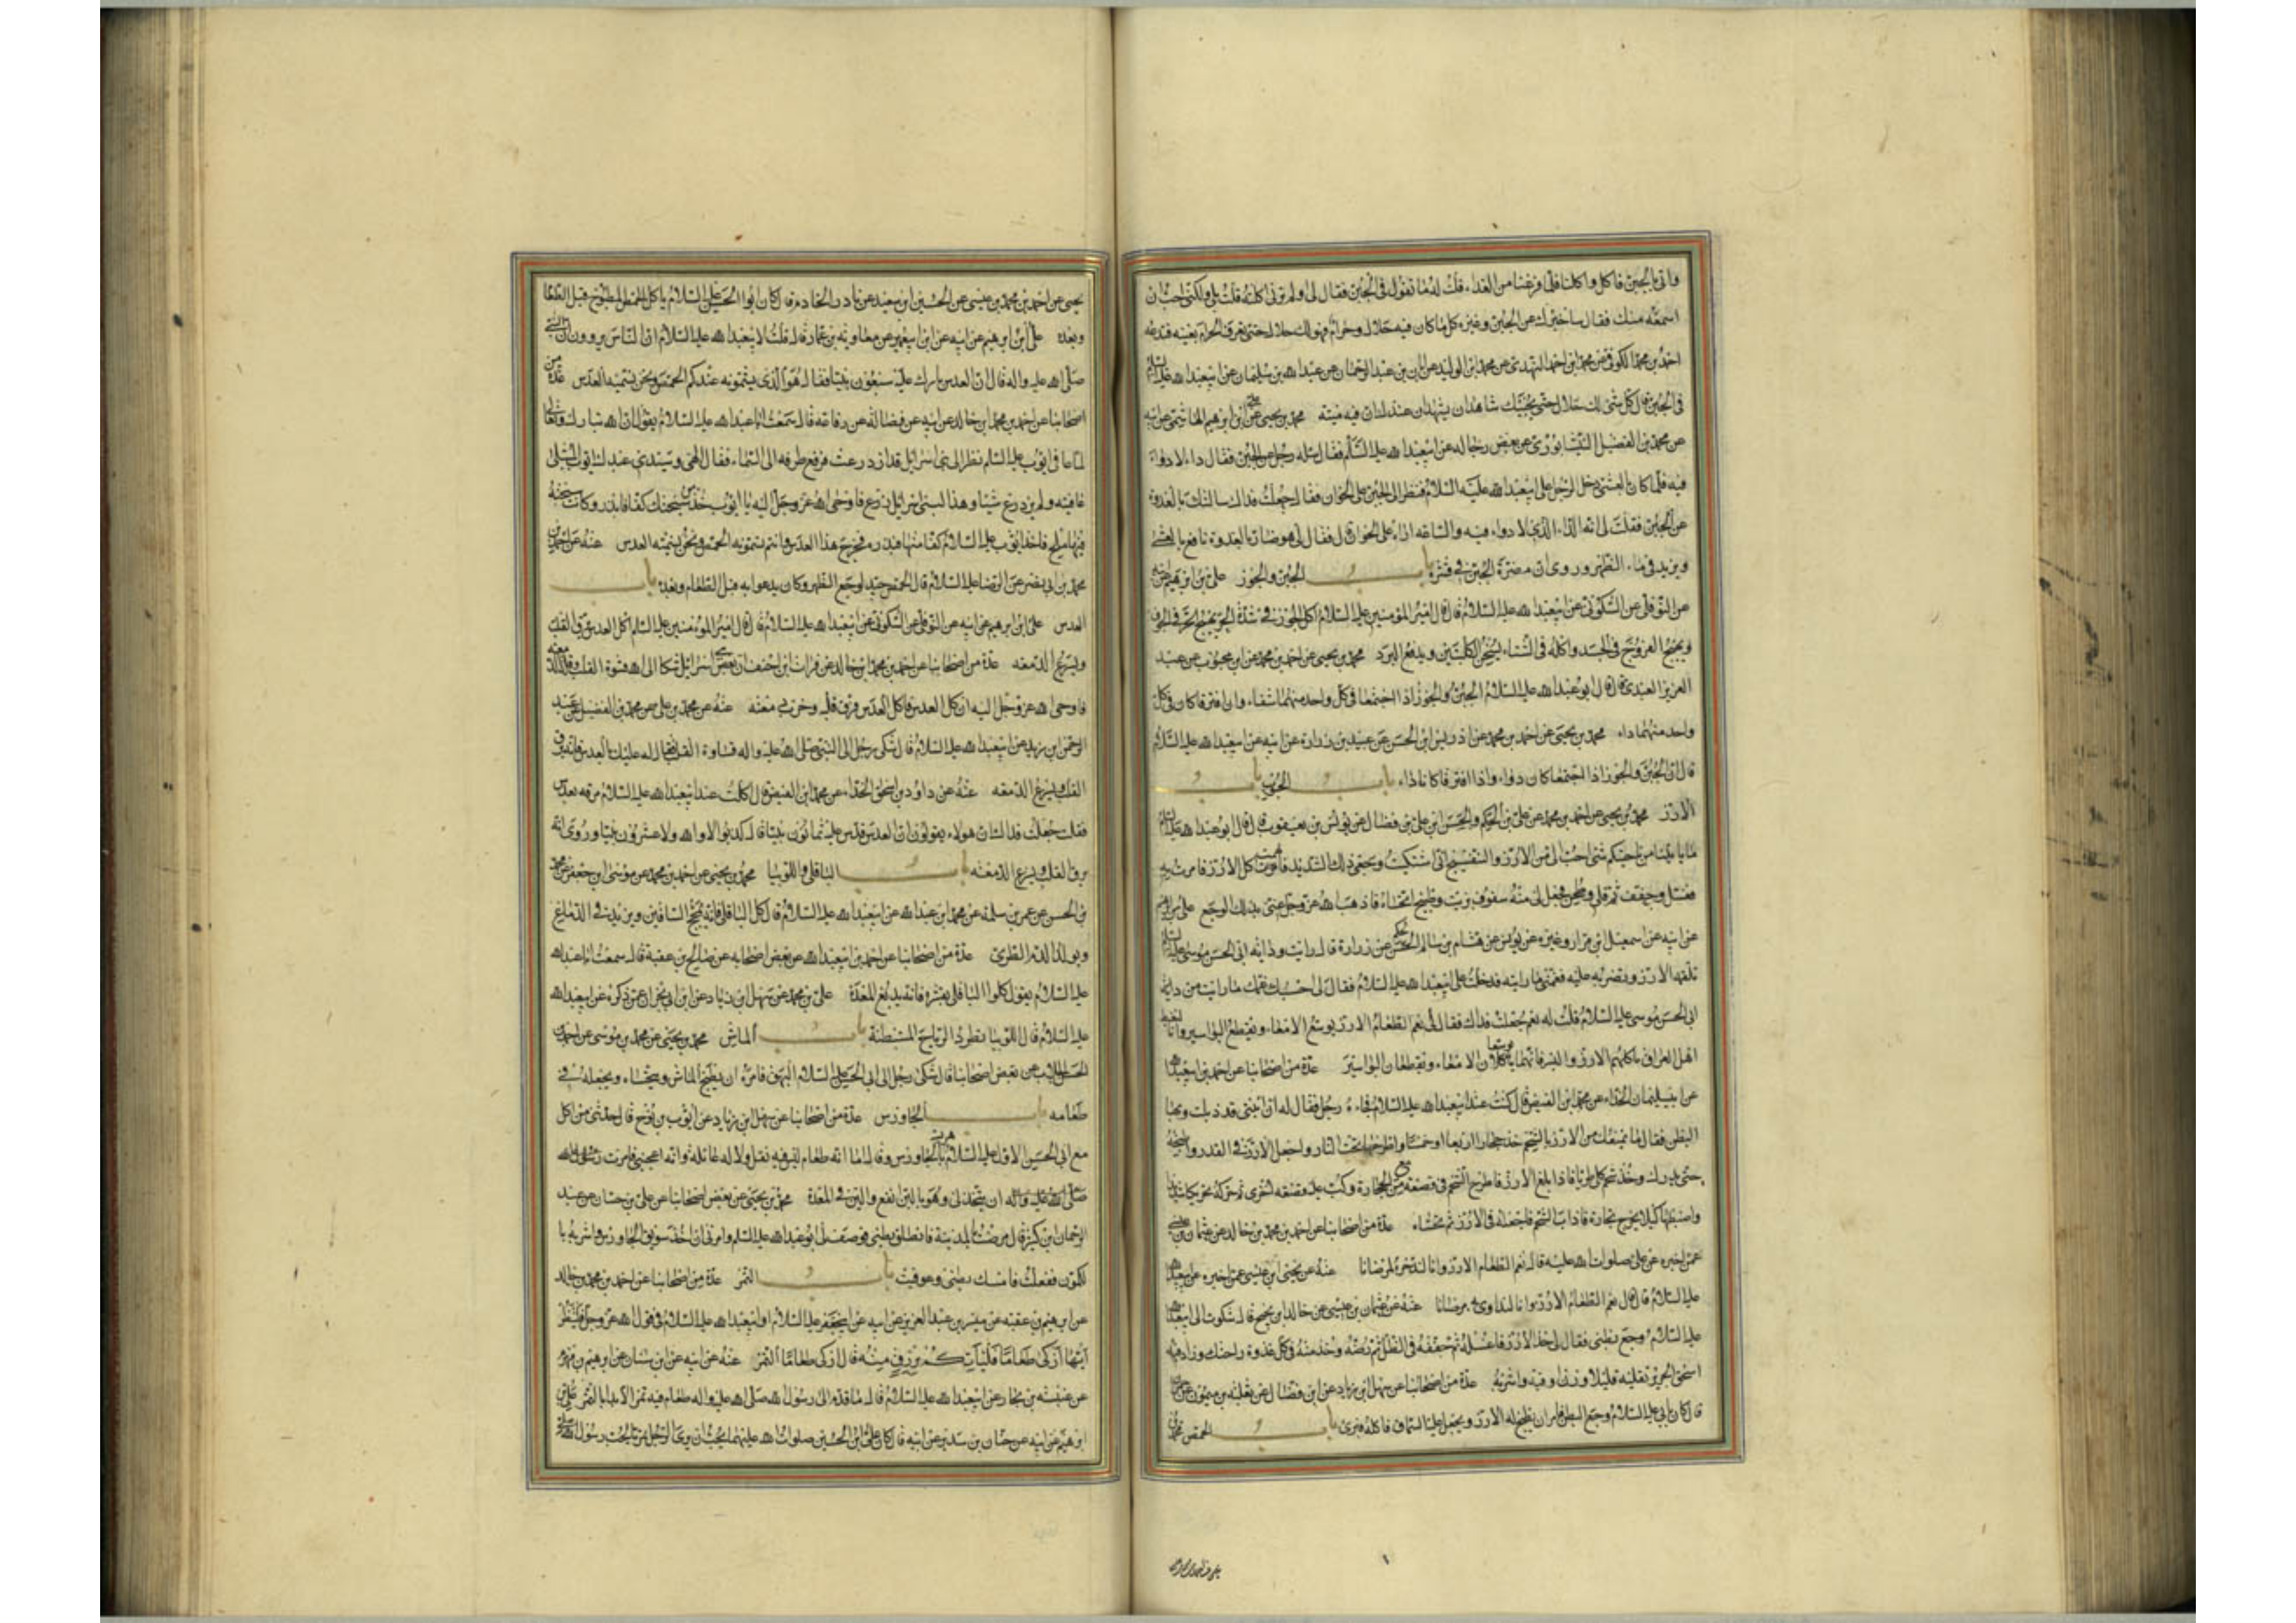 واتي بالجبن فاكل واكلنا فلما فرغنا من الغداء قلت له ما تقول في الجبن فقال لي اولم ترني اكلته قلت بلي ولكني احب ان
اسمعه منك فقال ساخبرك عن الجبن وغيره كل ما كان فيه حلال وحرام فهو لك حلال حتي تعرف الحرام بعينه فتدعه
احمد بن محمد الكوفي عن محمد ابن احمد النهدي عن محمد ابن الوليد عن ابان بن عبد الرحمان عن عبد الله بن سليمان عن ابيعبد الله عليه السلام
في الجبن قال كل شي لك حلال حتي يجيئك شاهدان يشهدان عندك ان فيه ميتة محمد بن يحيي عن علي بن ابرهيم الهاشمي عن ابيه
عن محمد بن الفضل النيشابوري عن بعض رجاله عن ابيعبد الله عليه السلم قال سئله رجل عن الجبن فقال داء لا دواء
فيه فلما كان بالعشي دخل الرجل علي ابيعبد الله عليه السلام فنظر الي الجبن علي الخوان فقال جعلت فداك سالتك بالغدوة
عن الجبن فقلت لي انه الداء الذي لا دواء فيه والساعة اراه علي الخوان قال فقال لي هو ضار بالغدوة نافع بالعشي
ويزيد في ماء الظهر وروي ان مضرة الجبن في قشره باب الجبن والجوز علي بن ابرهيم عن ابيه
عن النوفلي عن السكوني عن ابيعبد الله عليه السلام قال قال امير المؤمنين عليه السلام اكل الجوز في شدة الحر يهيج الحر في الجوف
ويهيج القروح في الجسد واكله في الشتاء يسخن الكليتين ويدفع البرد محمد بن يحيي عن احمد بن محمد عن ابن محبوب عن عبد
العزيز العبدي قال قال ابو عبد الله عليه السلام الجبن والجوز اذا اجتمعا في كل واحد منهما شفاء وان افترقا كان في كل
واحد منهما داء محمد بن يحيي عن احمد بن محمد عن ادريس ابن الحسن عن عبيد بن زرارة عن ابيه عن ابيعبد الله عليه السلام
قال ان الجبن والجوز اذا اجتمعا كان دواء واذا افترقا كانا داء باب الحبوب باب
الارز محمد بن يحيي عن احمد بن محمد عن علي بن الحكم والحسن ابن علي بن فضال عن يونس بن يعقوب قال قال ابو عبد الله عليه السلام
ما ياتينا من ناحيتكم شي احب الي من الارز والبنفسج اني اشتكيت وجعي ذلك الشديد فالهمت اكل الارز فامرت به
فغسل وجفف ثم قلي وطحن فجعل لي منه سفوف بزيت وطبيخ اتحساه فاذهب الله عز وجل عني بذلك الوجع علي بن ابرهيم
عن ابيه عن اسمعيل ابن مرار وغيره عن يونس عن هشام بن سالم عن زرارة قال رايت داية ابي الحسن موسي عليه السلام
تلقمه الارز وتضربه عليه فغمني ما رايته فدخلت علي ابيعبد الله عليه السلام فقال لي احسبك غمك ما رايت من داية
ابي الحسن موسي عليه السلام قلت له نعم جعلت فداك فقال لي نعم الطعام الارز يوسع الامعاء ويقطع البواسير وانا لنغبط
اهل العراق باكلهم الارز والبسر فانهما يوسعان الامعاء ويقطعان البواسير عدة من اصحابنا عن احمد بن ابيعبد الله
عن ابي سليمان الحذاء عن محمد ابن الفيض قال كنت عند ابيعبد الله عليه السلام فجاءه رجل فقال له ان ابنتي قد ذبلت وبها
البطن فقال ما يمنعك من الارز بالشحم خذ حجارا اربعا او خمسا واطرحها تحت النار واجعل الارز في القدر واطبخه
حتي يدرك وخذ شحم كلي طريا فاذا بلغ الارز فاطرح الشحم في قصعة مع الحجارة وكب عليه قصعة اخري ثم حركه تحريكا شديدا
واضبطها كيلا يخرج بخاره فاذا ذاب الشحم فاجعله في الارز ثم تحساه عدة من اصحابنا عن احمد بن محمد بن خالد عن عثمان بن عيسي
عمن اخبره عن علي صلوات الله عليه قال نعم الطعام الارز وانا لندخره لمرضانا عنه عن يحيي ابن عيسي عمن اخبره عن ابيعبد الله
عليه السلام قال قال نعم الطعام الارز وانا لنداوي به مرضانا عنه عن عثمان بن عيسي عن خالد ابن نجيح قال شكوت الي ابيعبد الله
عليه السلام وجع بطني فقال لي خذ الارز فاغسله ثم جففه في الظل ثم رضه وخذ منه في كل غدوة راحتك وزاد فيه
اسحق الجريري تقليه قليلا وزن اوقية واشربه عدة من اصحابنا عن سهل ابن زياد عن ابن فضال عن ثعلبة بن ميمون عن حمران
قال كان بابي عليه السلام وجع البطن فامر ان يطبخ له الارز ويجعل عليه السماق فاكله فبري باب الحمص محمد بن
يحيي عن احمد بن محمد بن عيسي عن الحسين ابن سعيد عن نادر الخادم قال كان ابو الحسن عليه السلام ياكل الحمص المطبوخ قبل الطعام
وبعده علي ابن ابرهيم عن ابيه عن ابن ابيعمير عن معاوية بن عمار قال قلت لابيعبد الله عليه السلام ان الناس يروون ان النبي
صلي الله عليه واله قال ان العدس بارك عليه سبعون نبيا فقال هو الذي يسمونه عندكم الحمص ونحن نسميه العدس عدة من
اصحابنا عن احمد بن محمد ابن خالد عن ابيه عن فضالة عن رفاعة قال سمعت ابا عبد الله عليه السلام يقول ان الله تبارك وتعالي
لما عافي ايوب عليه السلم نظر الي بني اسرائيل قد ازدرعت فرفع طرفه الي السماء فقال الهي وسيدي عبدك ايوب المبتلي
عافيته ولم يزدرع شيئا وهذا لبني اسرائيل زرع فاوحي الله عز وجل اليه يا ايوب خذ من سبحتك كفا فابذره وكانت سبحته
فيها ملح فاخذ ايوب عليه السلام كفا منها فبذره فخرج هذا العدس وانتم تسمونه الحمص ونحن نسميه العدس عنه عن احمد بن
محمد بن ابي نصر عن الرضا عليه السلام قال الحمص جيد لوجع الظهر وكان يدعو به قبل الطعام وبعده باب
العدس علي ابن ابرهيم عن ابيه عن النوفلي عن السكوني عن ابيعبد الله عليه السلام قال قال امير المؤمنين عليه السلم اكل العدس يرق القلب
ويسرع الدمعه عدة من اصحابنا عن احمد بن محمد ابن خالد عن فرات ابن احنف ان بعض بني اسرائيل شكا الي الله قسوة القلب وقلة الدمعة
فاوحي الله عز وجل اليه ان كل العدس فاكل العدس فرق قلبه وجرت دمعته عنه عن محمد بن علي عن محمد بن الفضيل عن عبد
الرحمن ابن زيد عن ابيعبد الله عليه السلام قال شكي رجل الي النبي صلي الله عليه واله قساوة القلب فقال له عليك بالعدس فانه يرق
القلب ويسرع الدمعه عنه عن داود بن اسحق الحذاء عن محمد ابن الفيض قال اكلت عند ابيعبد الله عليه السلام مرقه بعدس
فقلت جعلت فداك ان هولاء يقولون ان العدس قدس عليه ثمانون نبيا قال كذبوا لا والله ولا عشرون نبيا وروي انه
يرق القلب ويسرع الدمعه باب الباقلي واللوبيا محمد بن يحيي عن احمد بن محمد عن موسي ابن جعفر عن محمد
بن الحسن عن عمر بن سلمه عن محمد ابن عبد الله عن ابيعبد الله عليه السلام قال اكل الباقلي فانه يمخخ الساقين ويزيد في الدماغ
ويولد الدم الطري عدة من اصحابنا عن احمد بن ابيعبد الله عن بعض اصحابه عن صالح بن عقبة قال سمعت ابا عبد الله
عليه السلام يقول كلوا الباقلي بقشره فانه يدبغ المعدة علي بن محمد عن سهل ابن زياد عن ابن ابي نجران عمن ذكره عن ابيعبد الله
عليه السلام قال اللوبيا تطرد الرياح المستبطنة باب الماش محمد بن يحيي عن محمد بن موسي عن احمد بن
الحسن الجلاب عن بعض اصحابنا قال شكي رجل الي ابي الحسن عليه السلام البهق فامره ان يطبخ الماش ويتحساه ويجعله في
طعامه باب الجاورس عدة من اصحابنا عن سهل ابن زياد عن ايوب بن نوح قال حدثني من اكل
مع ابي الحسن الاول عليه السلام هريسة بالجاورس وقال اما انه طعام ليس فيه ثقل ولا له غائلة وانه اعجبني فامرت
ان يتخذ لي وهو باللبن انفع والين في المعدة محمد بن يحيي عن بعض اصحابنا عن علي بن حسان عن عبد
الرحمان ابن كثير قال مرضت بالمدينة فانطلق بطني فوصف لي ابو عبد الله عليه السلم وامرني ان اخذ سويق الجاورس واشربه بماء
الكمون ففعلت فامسك بطني وعوفيت باب التمر عدة من اصحابنا عن احمد بن محمد بن خالد
عن ابرهيم بن عقبه عن ميسر بن عبد العزيز عن ابيه عن ابيجعفر عليه السلام او ابيعبد الله عليه السلام في قول الله عز وجل فلينظر
ايها ازكي طعاما فلياتكم برزق منه قال ازكي طعاما التمر عنه عن ابيه عن ابن سنان عن ابرهيم بن مهزم
عن عنبسه بن بجاد عن ابيعبد الله عليه السلام قال ما قدم الي رسول الله صلي الله عليه واله طعام فيه تمر الا بدا بالتمر علي بن
ابرهيم عن ابيه عن حنان بن سدير عن ابيه قال كان علي ابن الحسين صلوات الله عليهما يحب ان يري الرجل تمريا لحب رسول الله